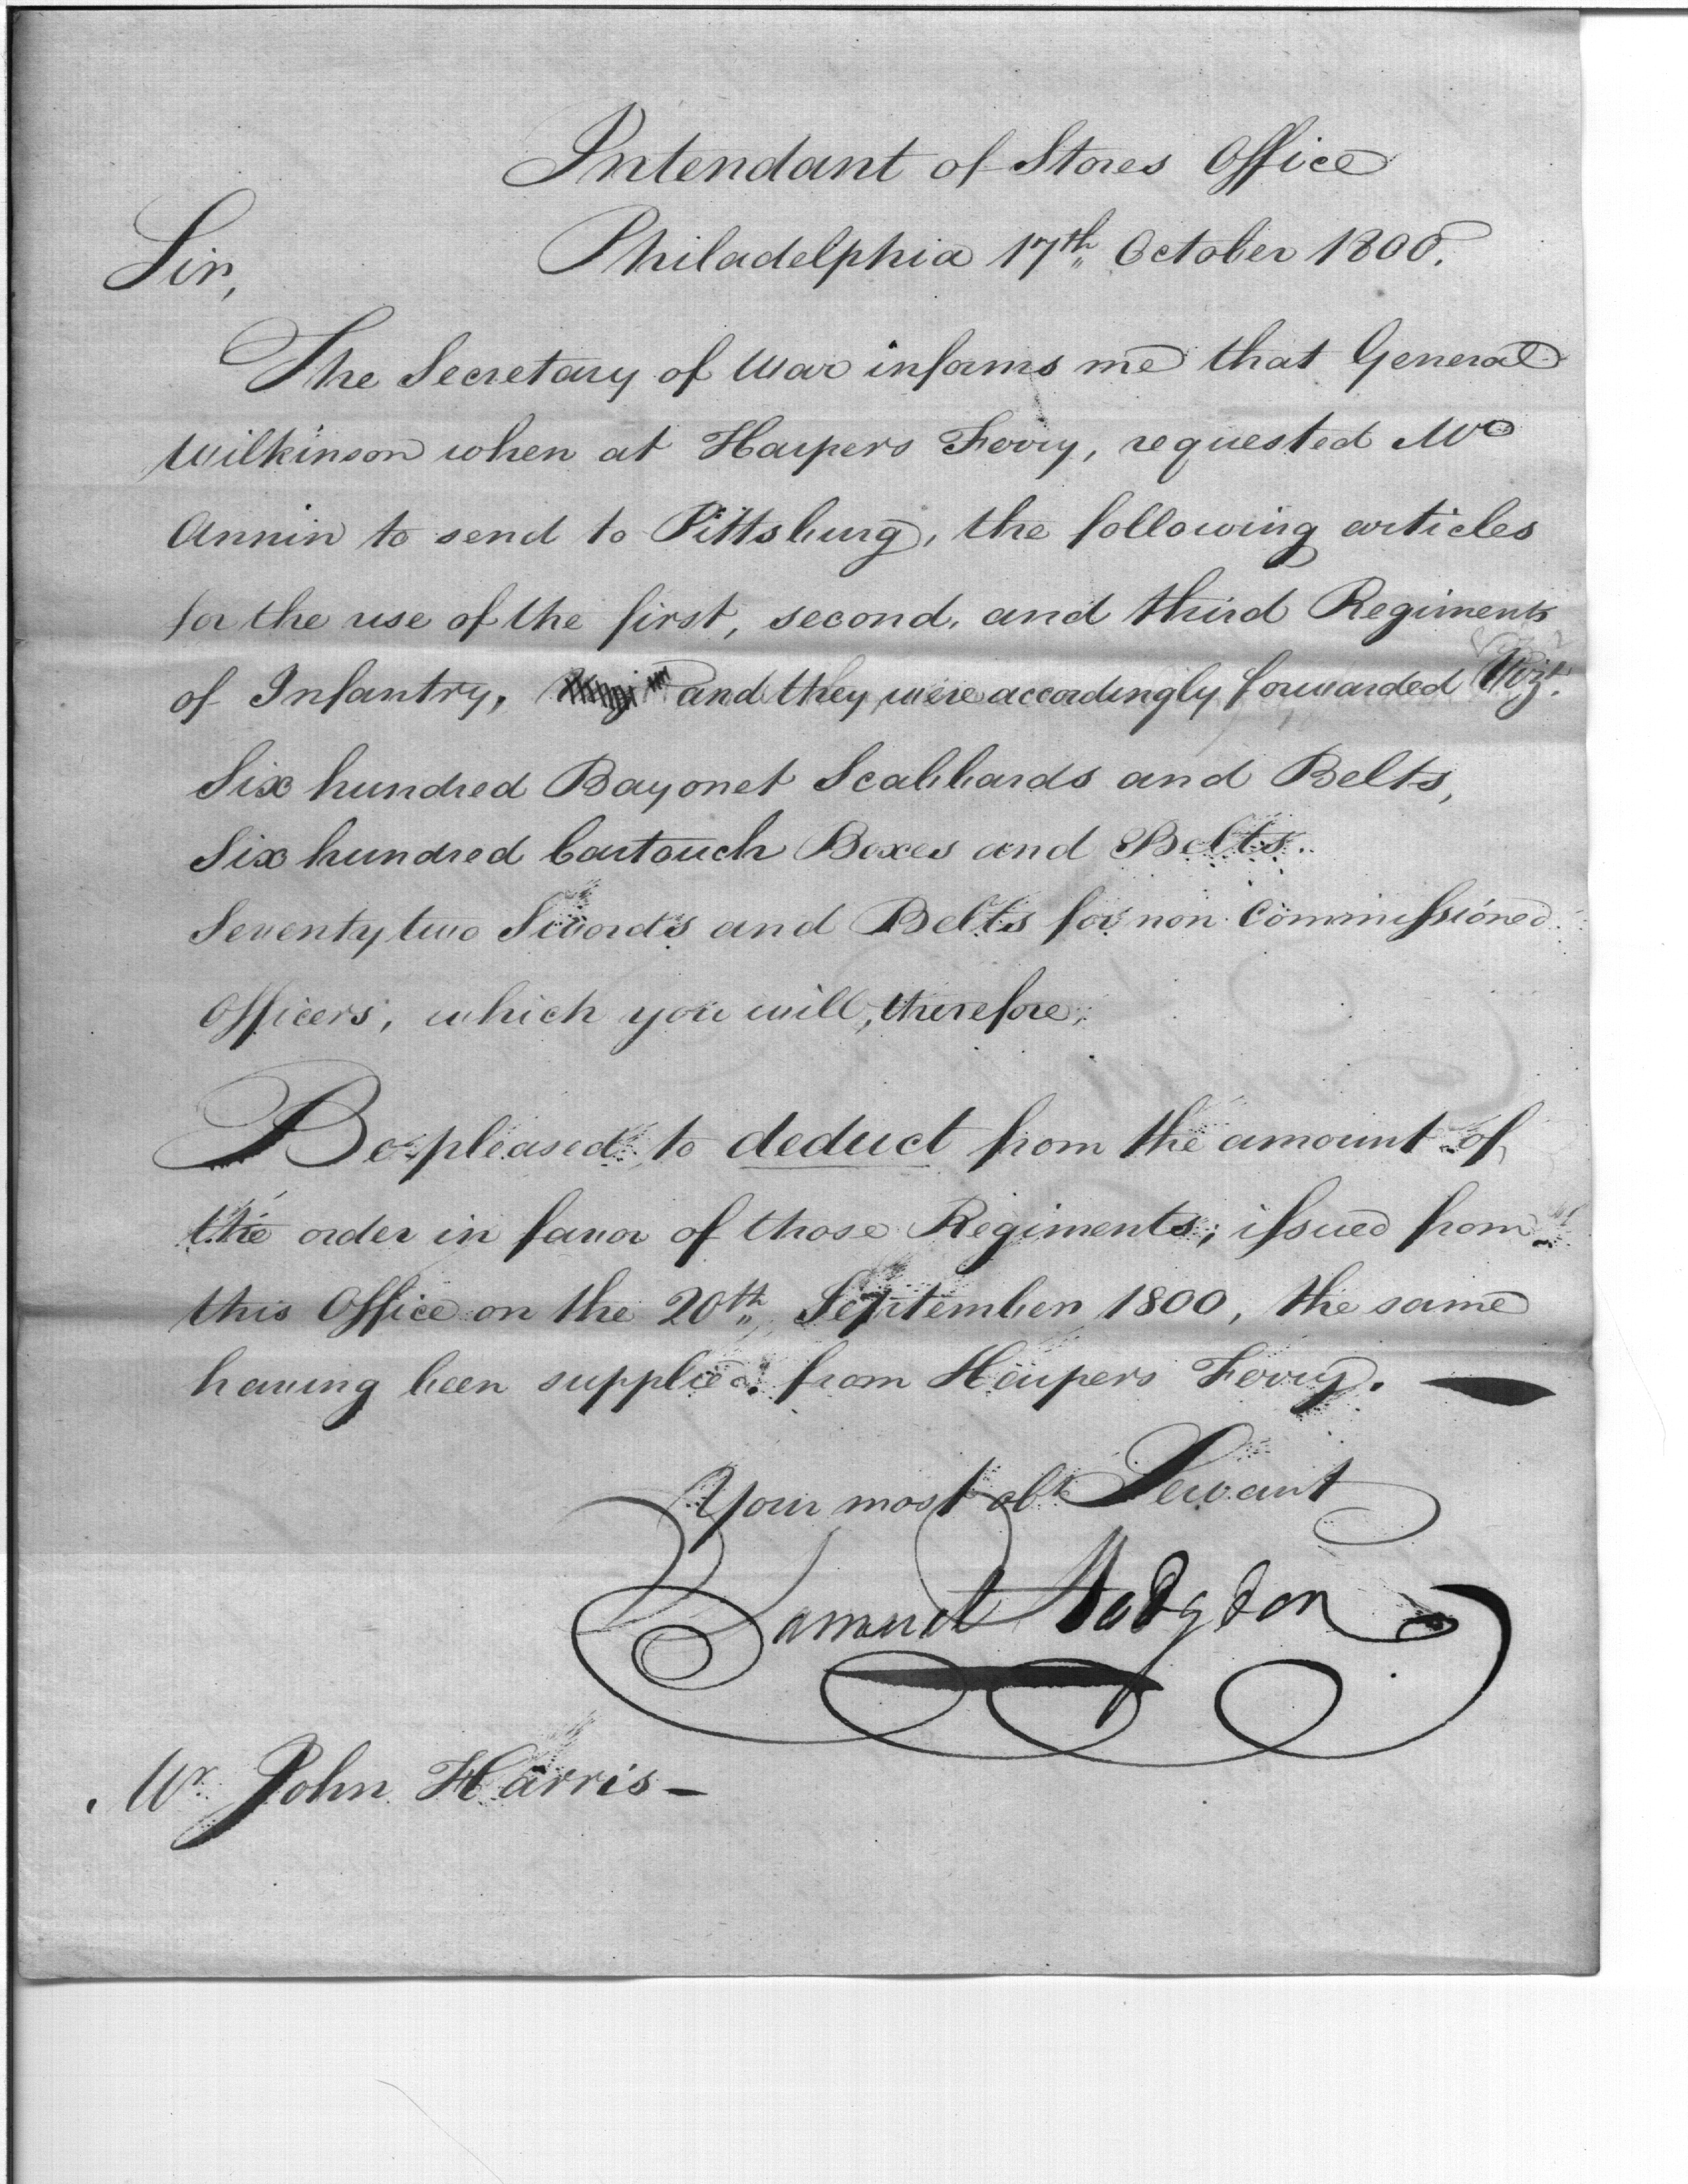 Intendant of Stores Office
Philadelphia 17th October 1800.
Sir,
The Secretary of War informs me that General
Wilkinson when at Harpers Ferry, requested Mr
Annin to send to Pittsburg, the following articles
for the use of the first, second, and third Regiments
of Infantry, and they were accordingly forwarded Vizt.
Six hundred Bayonet Scabbards and Belts,
Six hundred Cartouch Boxes and Belts.
Seventy two Swords and Belts for non Commissioned
Officers, which you will, therefore,
Be pleased to deduct from the amount of
the order in favor of those Regiments, issued from
this Office on the 20th September 1800, the same
having been supplied from Harpers Ferry.
Your most obt Servant
Samuel Hodgdon
Mr. John Harris-